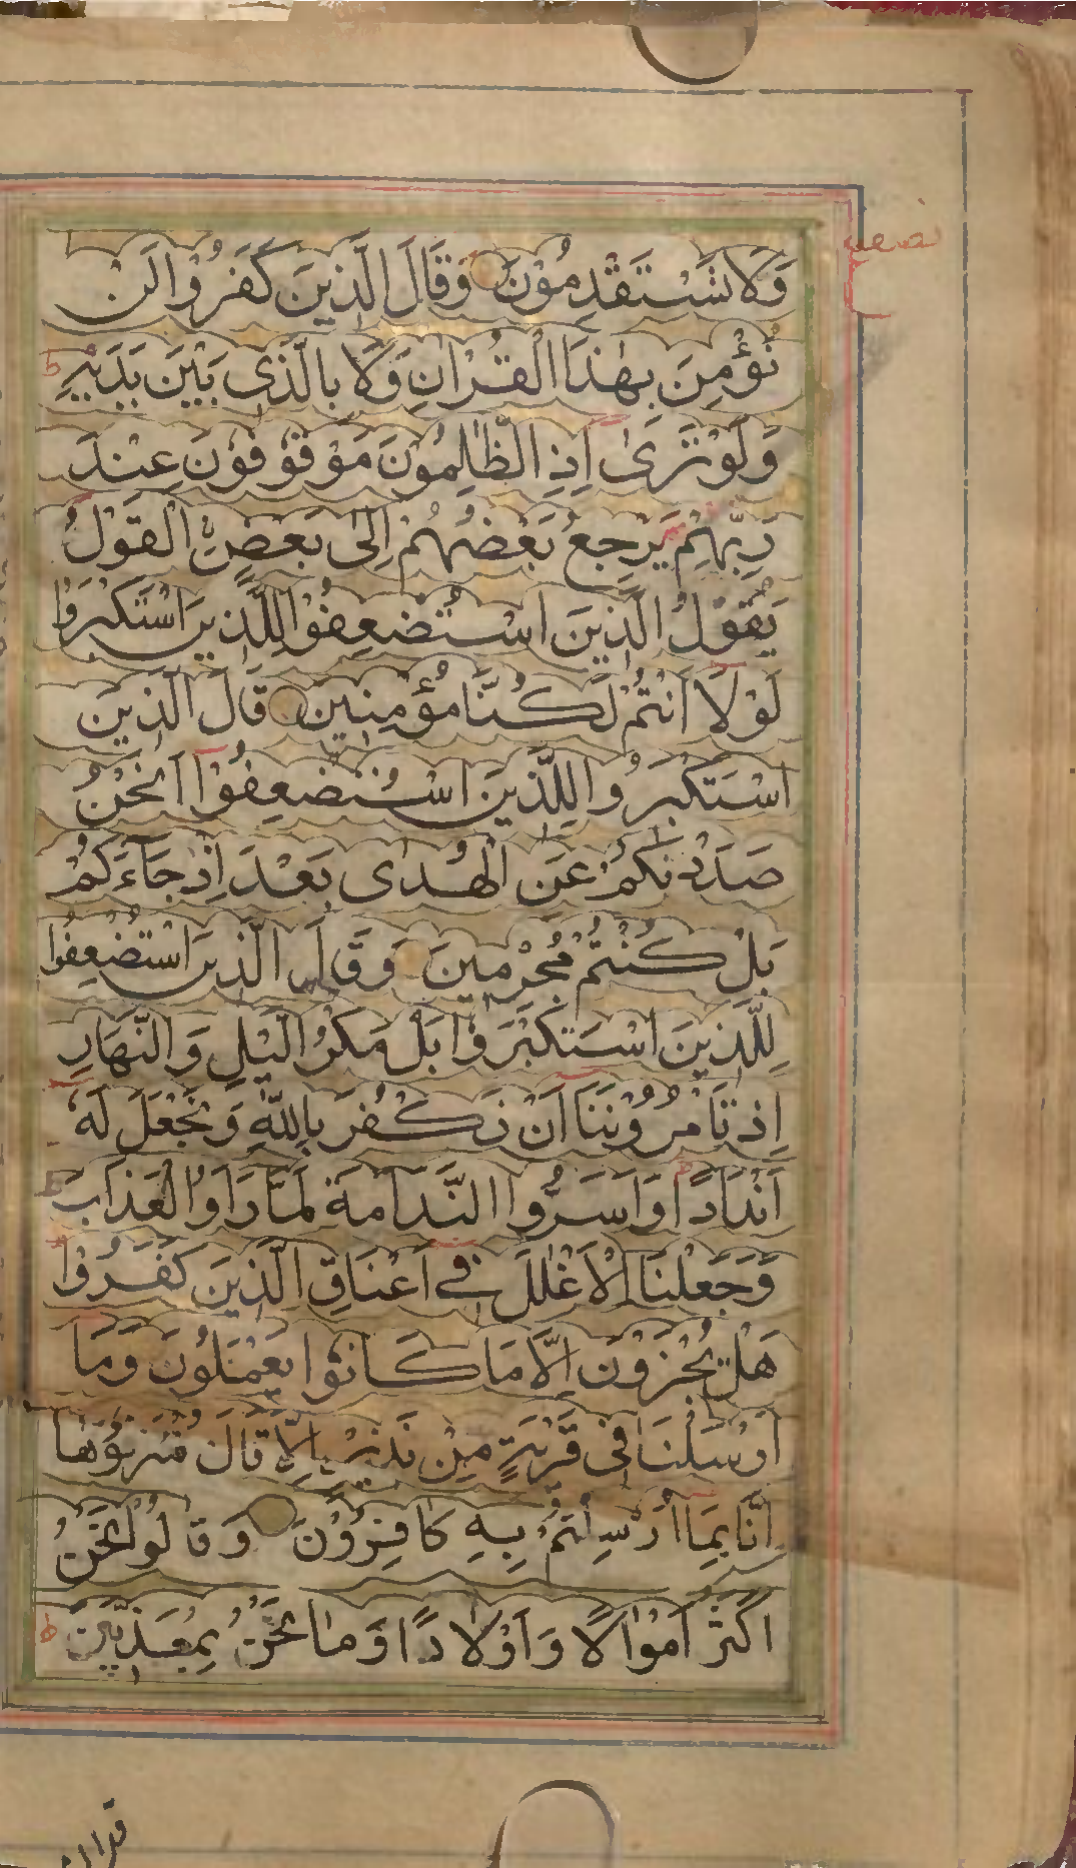 نصف
وَلَا تَسْتَقْدِمُوْنَ وَقَالَ الَّذِيْنَ كَفَرُوْا لَنْ
نُؤْمِنَ بِهٰذَا الْقُرْاٰنِ وَلَا بِالَّذِى بَيْنَ يَدَيْهِ ط
وَلَوْ تَرٰى اِذِ الظّٰلِمُوْنَ مَوْقُوْفُوْنَ عِنْدَ
رَبِّهِمْ يَرْجِعُ بَعْضُهُمْ اِلٰى بَعْضِ نِ الْقَوْلَ
يَقُوْلُ الَّذِيْنَ اسْتُضْعِفُوْا لِلَّذِيْنَ اسْتَكْبَرُوْا
لَوْلَا اَنْتُمْ لَكُنَّا مُؤْمِنِيْنَ قَالَ الَّذِيْنَ
اسْتَكْبَرُوا لِلَّذِيْنَ اسْتُضْعِفُوْا اَنَحْنُ
صَدَدْنٰكُمْ عَنِ الْهُدٰى بَعْدَ اِذْ جَآءَكُمْ
بَلْ كُنْتُمْ مُجْرِمِيْنَ وَقَالَ الَّذِيْنَ اسْتُضْعِفُوا
لِلَّذِيْنَ اسْتَكْبَرُوْا بَلْ مَكْرُ الَّيْلِ وَالنَّهَارِ
اِذْ تَاْمُرُوْنَنَا اَنْ نَكْفُرَ بِاللّٰهِ وَنَجْعَلَ لَهٗ
اَنْدَادًا ط وَاَسَرُّوا النَّدَامَةَ لَمَّا رَاَوُا الْعَذَابَ
وَجَعَلْنَا الْاَغْلٰلَ فِى اَعْنَاقِ الَّذِيْنَ كَفَرُوْا
هَلْ يُجْزَوْنَ اِلَّا مَا كَانُوْا يَعْمَلُوْنَ وَمَا
اَرْسَلْنَا فِى قَرْيَةٍ مِنْ نَذِيْرٍ اِلَّا قَالَ مُتْرَفُوْهَا
اِنَّا بِمَا اُرْسِلْتُمْ بِهٖ كَافِرُوْنَ وَقَالُوْا نَحْنُ
اَكْثَرُ اَمْوَالًا وَاَوْلَادًا وَمَا نَحْنُ بِمُعَذَّبِيْنَ ط